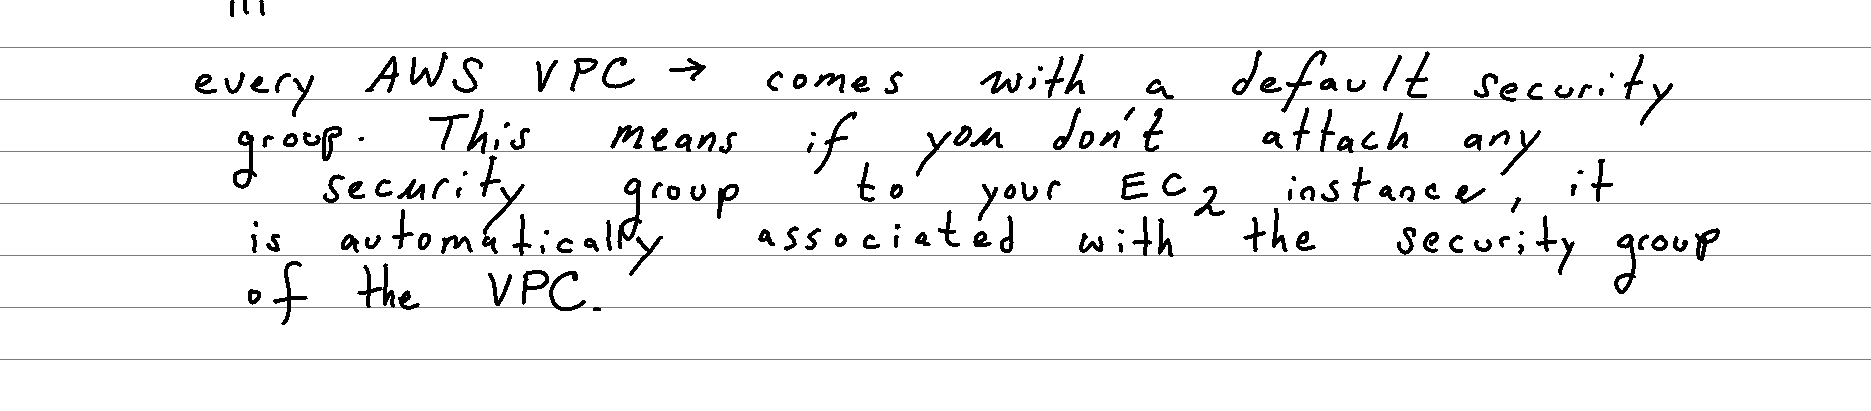 every AWS VPC → comes with a default security
group. This means if you don't attach any
security group to your EC2 instance, it
is automatically associated with the security group
of the VPC.